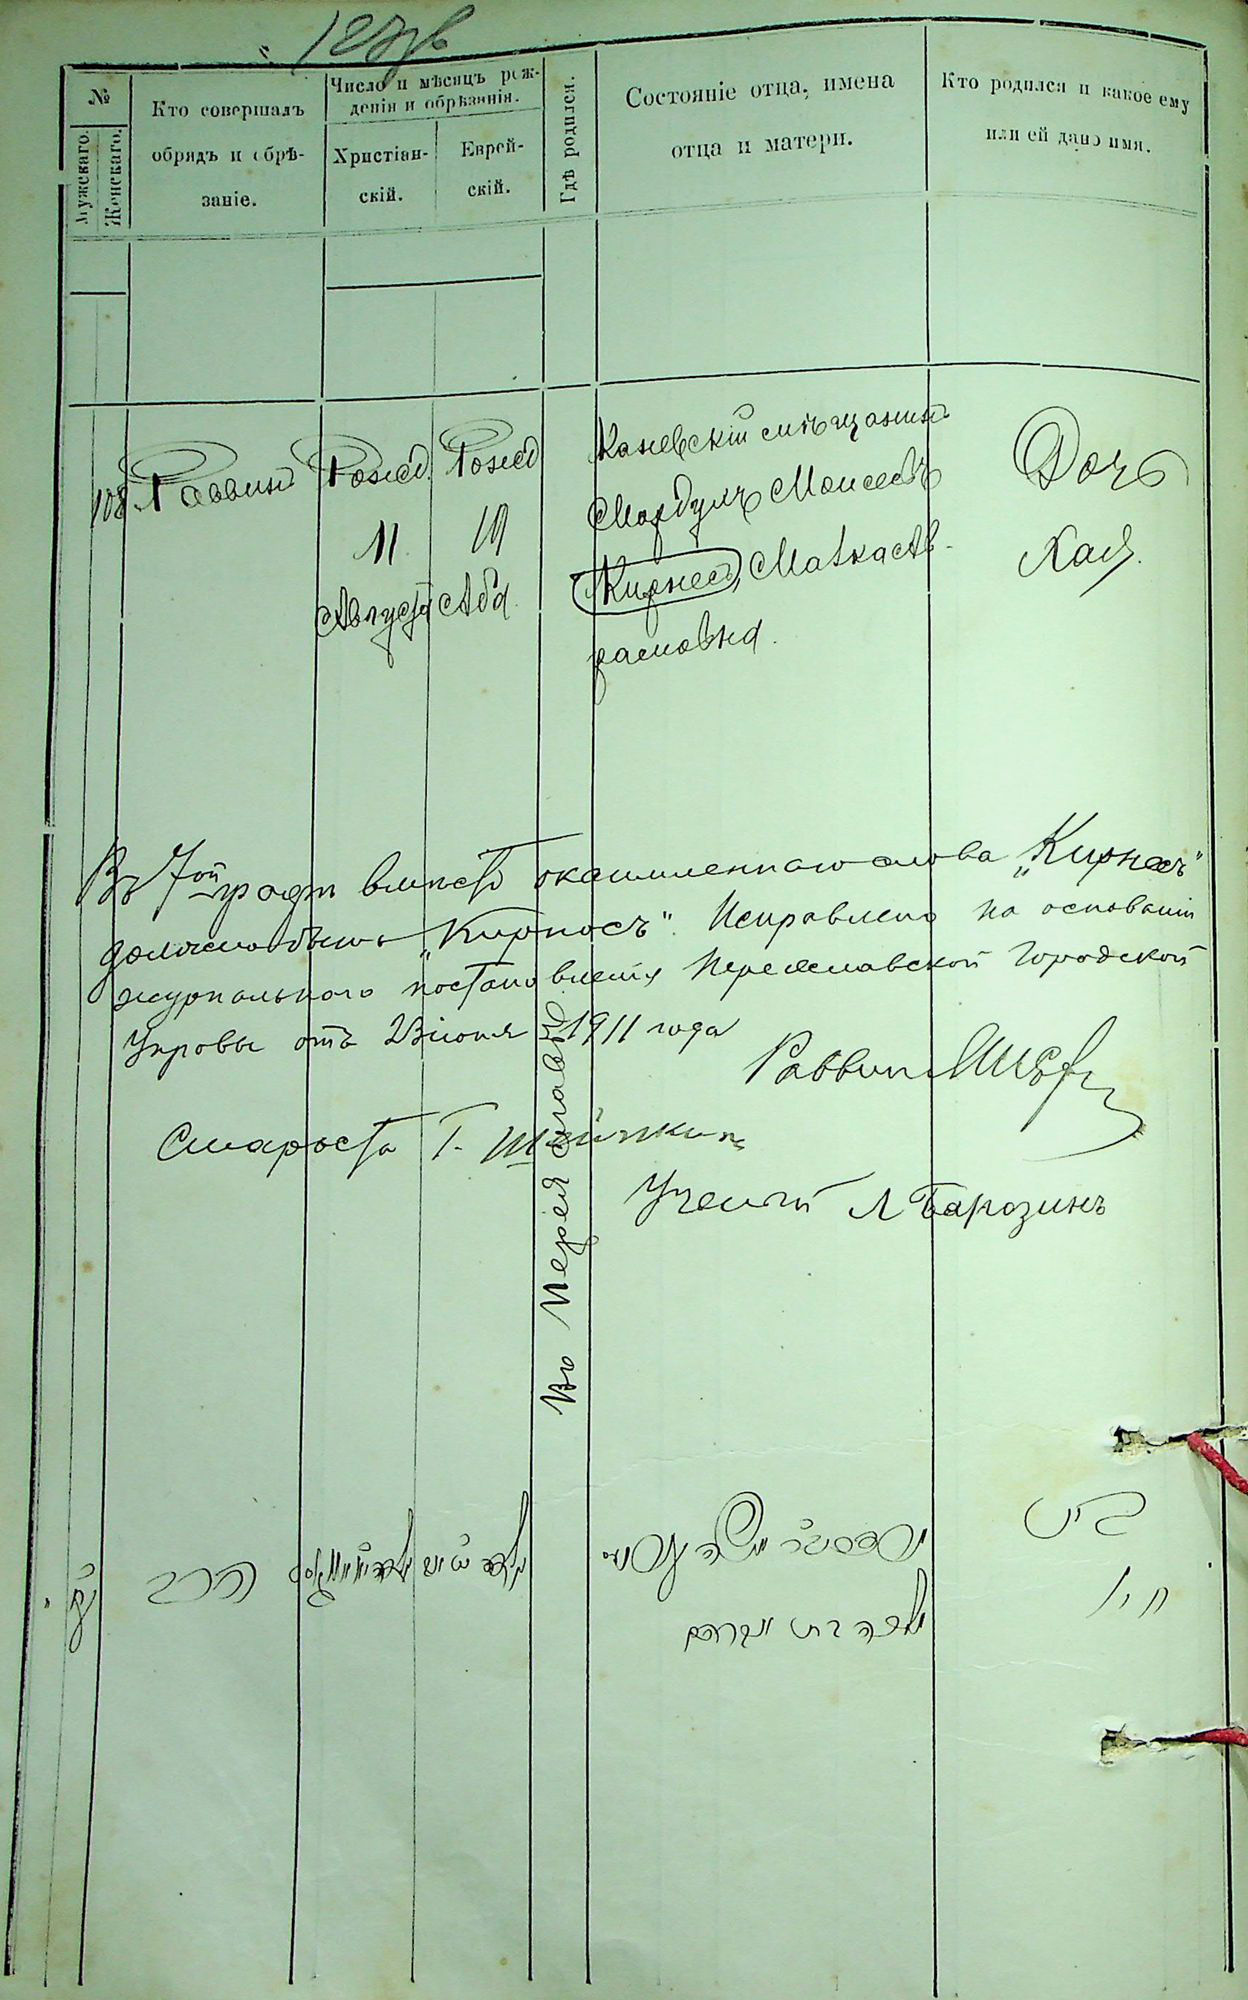 127 об
№
Мужскаго.
Женскаго.
Кто совершалъ
обрядъ и обрѣ-
заніе.
Число и мѣсяцъ рож-
денія и обрѣзанія.
Христіан-
скій.
Еврей-
скій.
Гдѣ родился.
Состояніе отца, имена
отца и матери.
Кто родился и какое ему
или ей дано имя.
108
Раввинъ
Рожд.
11
Августа
Рожд
19
Аба
Въ Переяславѣ
Каневскій мѣщанинъ
Мордухъ Моисеевъ
Кирнесъ, Матка Ав-
рамовна.
Дочь
Хая.
Въ 7ой графѣ вмѣсто окаймленнаго слова „Кирнесъ"
должно быть „Кирносъ". Исправлено на основаніи
журнальнаго постановленія Переяславской Городской
Управы отъ 23 іюня 1911 года
Раввинъ
Староста Г.
Ученый Л Барозинъ
קח
הרב
בת
חי'